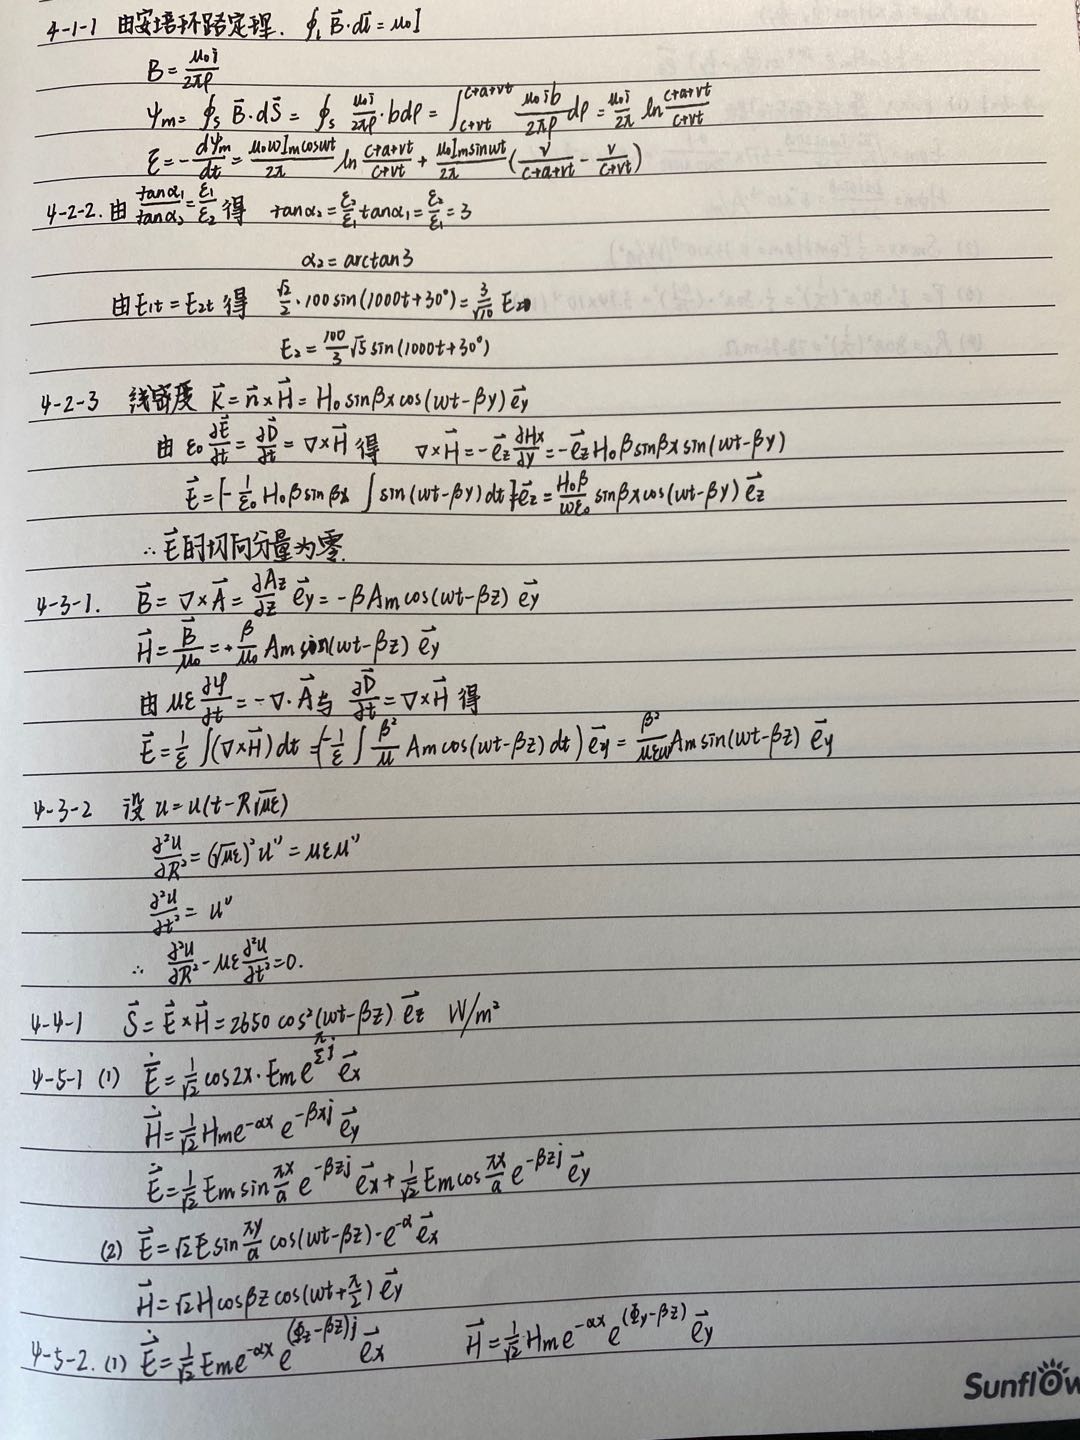 4-1-1 由安培环路定理. ∮ₗ B⃗·dl⃗ = μ₀I
B = μ₀i/2πρ
ψm = ∮ₛ B⃗·dS⃗ = ∮ₛ μ₀i/2πρ · bdρ = ∫_{c+vt}^{c+a+vt} μ₀ib/2πρ dρ = μ₀i/2π ln (c+a+vt)/(c+vt)
ξ = -dψm/dt = μ₀ωImcosωt/2π ln (c+a+vt)/(c+vt) + μ₀Imsinωt/2π (v/(c+a+vt) - v/(c+vt))
4-2-2. 由 tanα₁/tanα₂ = ε₁/ε₂ 得 tanα₂ = ε₂/ε₁ tanα₁ = ε₂/ε₁ = 3
α₂ = arctan3
由E₁t = E₂t 得 √2/2 · 100sin(1000t+30°) = 3/√10 E₂
E₂ = 100/3 √5 sin(1000t+30°)
4-2-3 线密度 K⃗ = n⃗×H⃗ = H₀sinβxcos(ωt-βy) e⃗y
由 ε₀ ∂E⃗/∂t = ∂D⃗/∂t = ∇×H⃗ 得 ∇×H⃗ = -e⃗z ∂Hx/∂y = -e⃗z H₀βsinβxsin(ωt-βy)
E⃗ = [-1/ε₀ H₀βsinβx ∫sin(ωt-βy)dt] e⃗z = H₀β/ωε₀ sinβxcos(ωt-βy) e⃗z
∴ E⃗的切向分量为零.
4-3-1. B⃗ = ∇×A⃗ = ∂Az/∂z e⃗y = -βAmcos(ωt-βz) e⃗y
H⃗ = B⃗/μ₀ = + β/μ₀ Amsin(ωt-βz) e⃗y
由 με ∂φ/∂t = -∇·A⃗ 与 ∂D⃗/∂t = ∇×H⃗ 得
E⃗ = 1/ε ∫(∇×H⃗)dt = (-1/ε ∫ β²/μ Amcos(ωt-βz)dt) e⃗y = β²/μεω Amsin(ωt-βz) e⃗y
4-3-2 设 u = u(t-R√με)
∂²u/∂R² = (√με)²u'' = μεu''
∂²u/∂t² = u''
∴ ∂²u/∂R² - με ∂²u/∂t² = 0.
4-4-1 S⃗ = E⃗×H⃗ = 2650 cos²(ωt-βz) e⃗z W/m²
4-5-1 (1) Ė⃗ = 1/√2 cos2x·Em e^{π/2 j} e⃗x
Ḣ⃗ = 1/√2 Hme^{-αx} e^{-βxj} e⃗y
Ė⃗ = 1/√2 Emsin πx/a e^{-βzj} e⃗x + 1/√2 Emcos πx/a e^{-βzj} e⃗y
(2) E⃗ = √2Esin πy/a cos(ωt-βz)·e^{-α} e⃗x
H⃗ = √2Hcosβzcos(ωt+π/2) e⃗y
4-5-2. (1) Ė⃗ = 1/√2 Eme^{-αx} e^{(Φz-βz)j} e⃗x H⃗ = 1/√2 Hme^{-αx} e^{(Φy-βz)} e⃗y